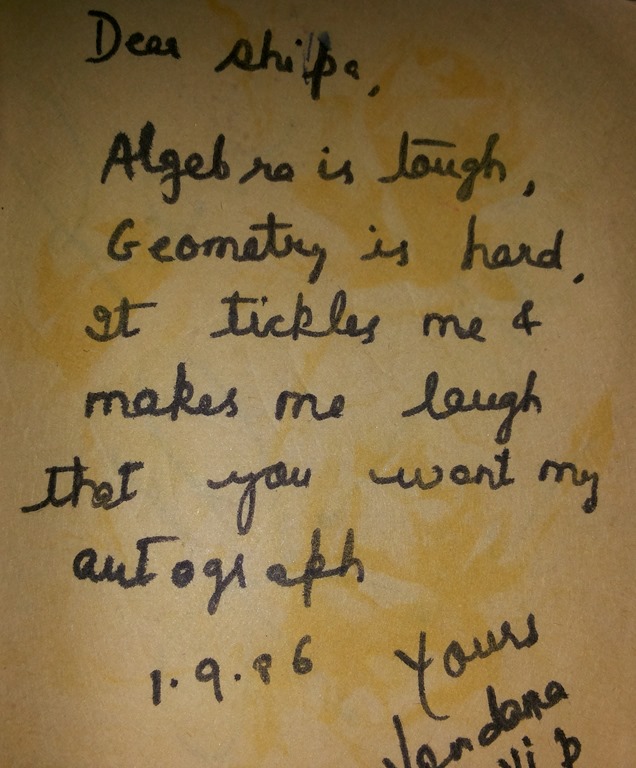 Dear Shilpa,
Algebra is tough,
Geometry is hard,
It tickles me &
makes me laugh
that you want my
autograph
1.9.86 Yours
Vandana